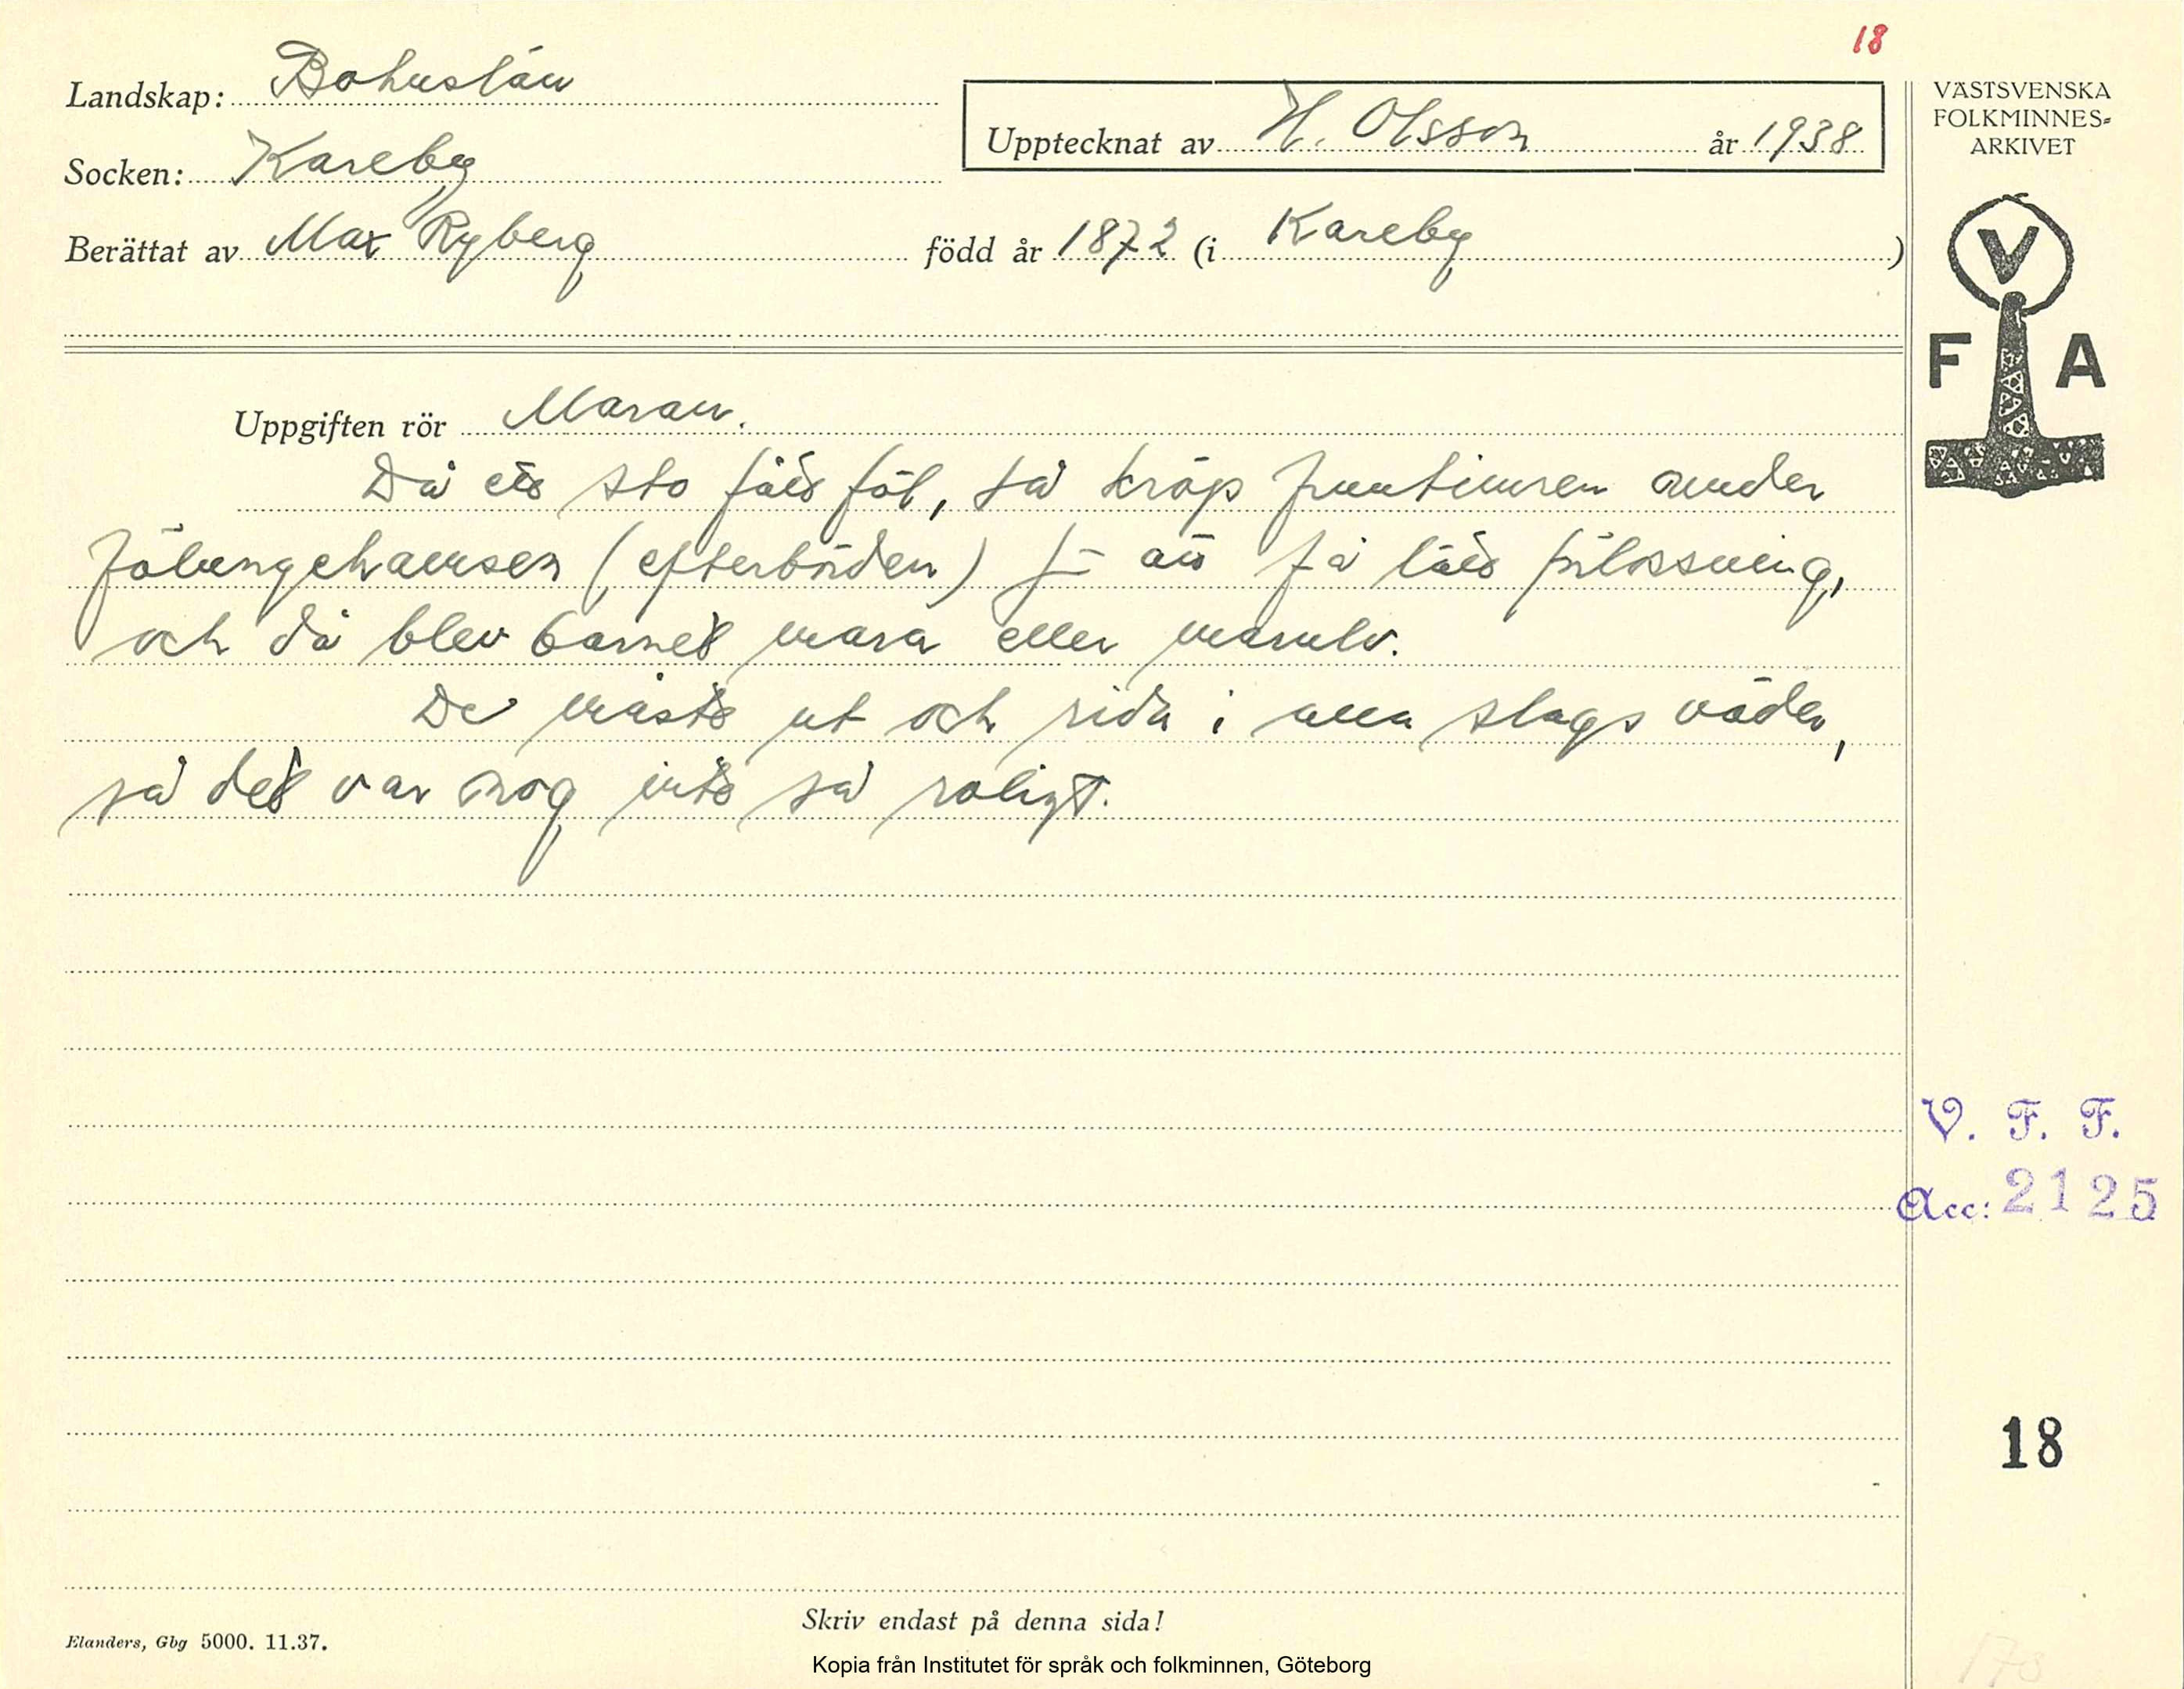 18
Landskap: Bohuslän
Socken: Kareby
Upptecknat av H. Olsson år 1938
Berättat av Max Ryberg född år 1872 (i Kareby)
VÄSTSVENSKA
FOLKMINNES=
ARKIVET
V
F A
Uppgiften rör Maran.
Då ett sto fått föl, så kröp fruntimren under
fölungehamsen (efterbörden) f- att få lätt förlossning,
och då blev barnet mara eller marulv.
De måste ut och rida i alla slags väder,
så det var nog inte så roligt.
V. F. F.
Acc: 2125
18
Skriv endast på denna sida!
Elanders, Gbg 5000. 11.37.
Kopia från Institutet för språk och folkminnen, Göteborg